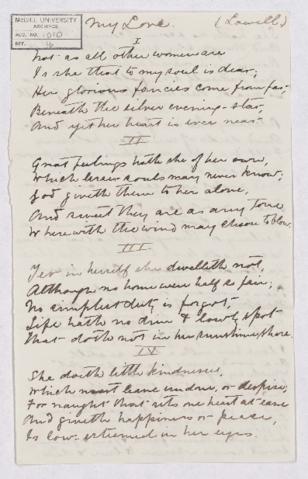 McGILL UNIVERSITY
ARCHIVES
ACC. NO. 1010
REF. 16
My Love. (Lowell)
I
Not as all other women are
Is she that to my soul is dear,
Her glorious fancies come from far,
Beneath the silver evening-star,
And yet her heart is ever near.
II
Great feelings hath she of her own,
Which lesser souls may never know;
God giveth them to her alone,
And sweet they are as any tone
Wherewith the wind may choose to blow.
III
Yet in herself she dwelleth not,
Although no home were half so fair;
No simplest duty is forgot,
Life hath no dim & lowly spot
That doth not in her sunshine share.
IV
She doeth little kindnesses,
Which most leave undone, or despise,
For naught that sets one heart at ease
And giveth happiness or peace,
Is low-esteemed in her eyes.